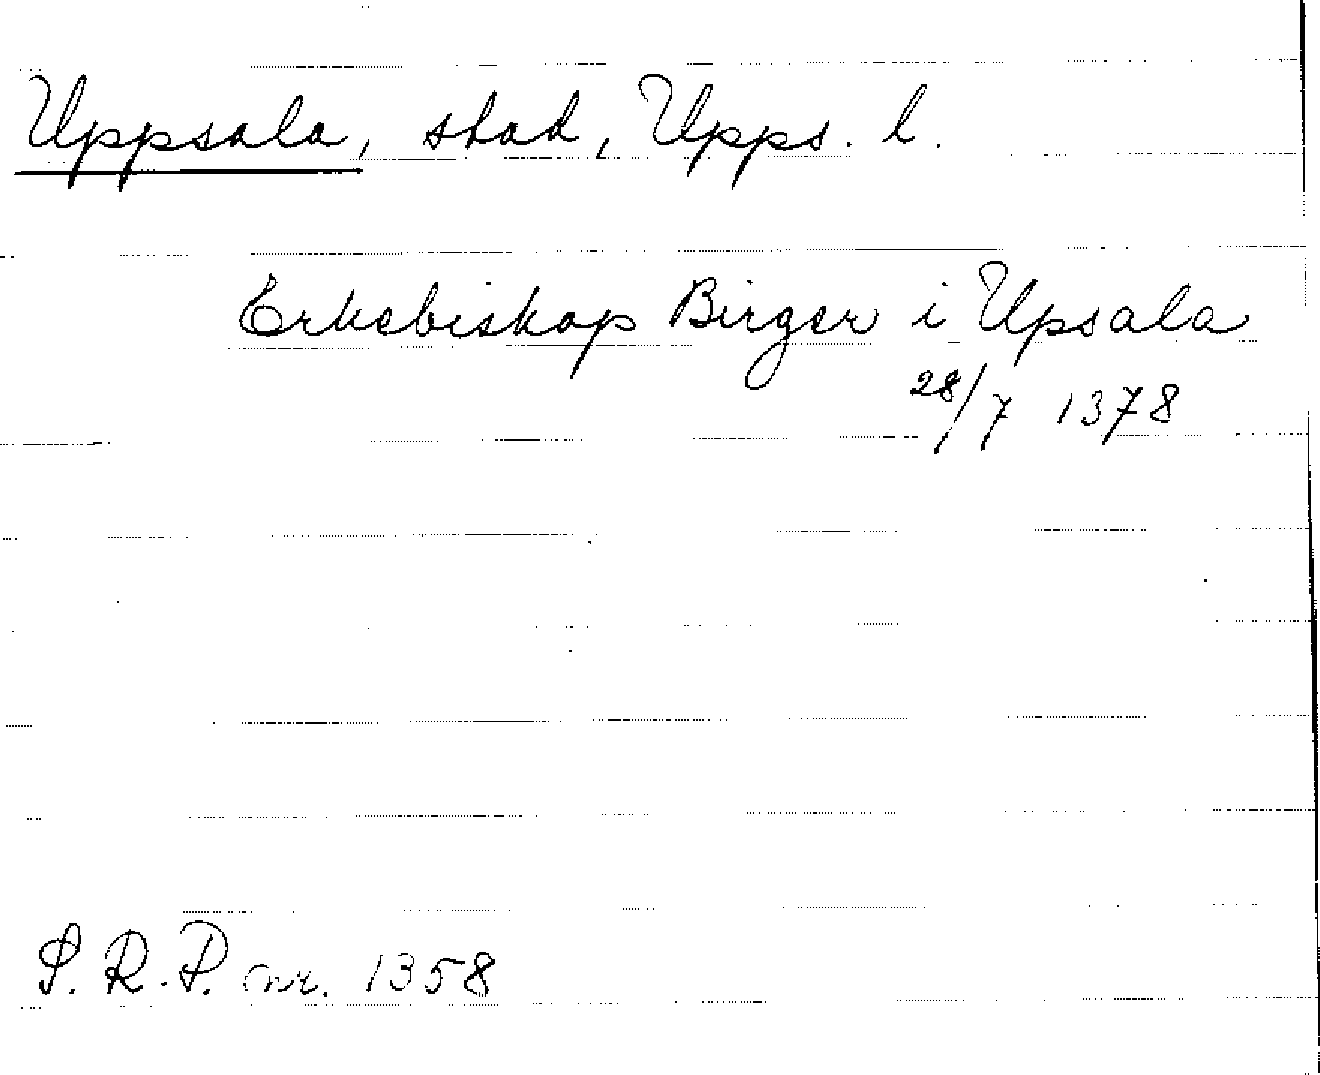 Uppsala, stad, Upps. l.
Erkebiskop Birger i Upsala
28/7 1378
S. R. P. nr. 1358